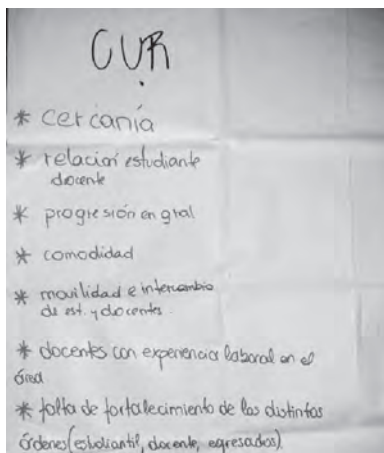 CUR
* cercanía
* relación estudiante
docente
* progresión en gral
* comodidad
* movilidad e intercambio
de est. y docentes.
* docentes con experiencia laboral en el
área
* falta de fortalecimiento de los distintos
órdenes (estudiantil, docente, egresados).